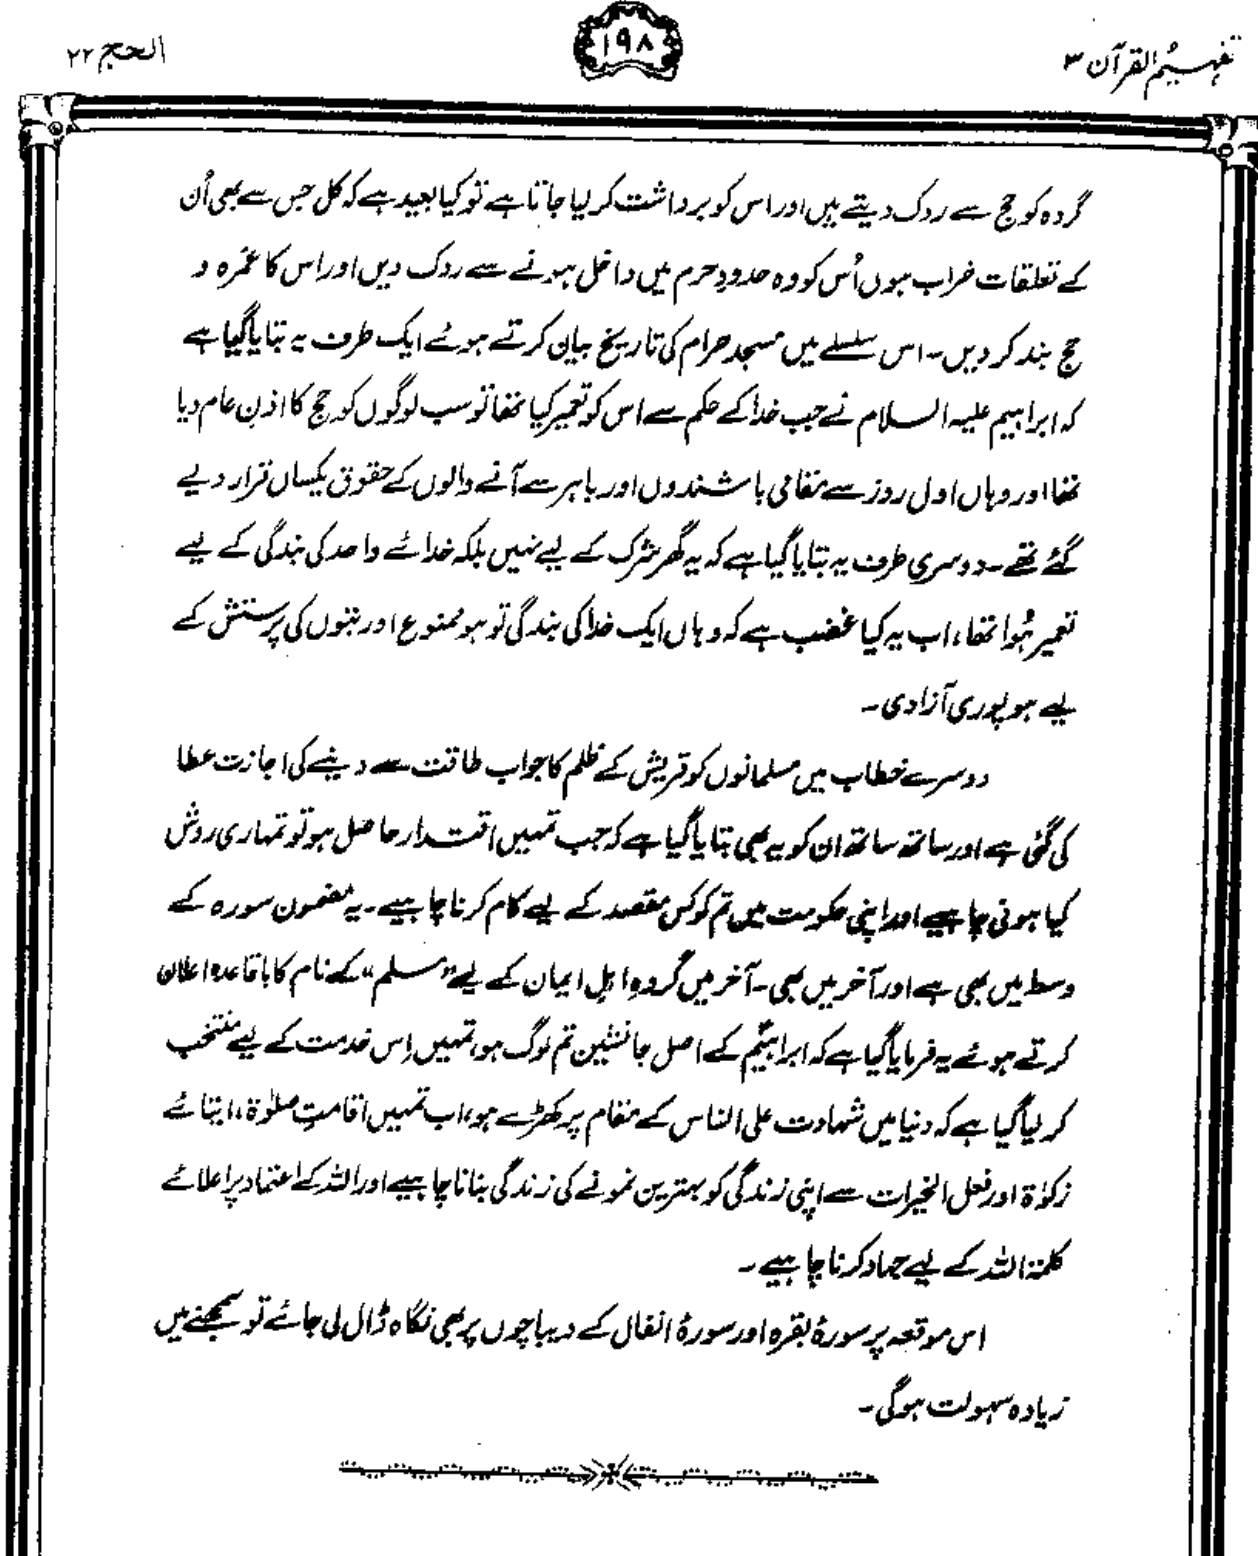 تفہیم القرآن ۳
۱۹۸
الحج ۲۲
گروہ کو حج سے روک دیتے ہیں اور اس کو برداشت کر لیا جاتا ہے تو کیا بعید ہے کہ کل جس سے بھی اُن
کے تعلقات خراب ہوں اُس کو وہ حدودِ حرم میں داخل ہونے سے روک دیں اور اس کا عمرہ و
حج بند کر دیں۔ اس سلسلے میں مسجد حرام کی تاریخ بیان کرتے ہوئے ایک طرف یہ بتایا گیا ہے
کہ ابراہیم علیہ السلام نے جب خدا کے حکم سے اس کو تعمیر کیا تھا تو سب لوگوں کو حج کا اذنِ عام دیا
تھا اور وہاں اول روز سے مقامی باشندوں اور باہر سے آنے والوں کے حقوق یکساں قرار دیے
گئے تھے۔ دوسری طرف یہ بتایا گیا ہے کہ یہ گھر شرک کے لیے نہیں بلکہ خدائے واحد کی بندگی کے لیے
تعمیر ہُوا تھا، اب یہ کیا غضب ہے کہ وہاں ایک خدا کی بندگی تو ہو ممنوع اور بتوں کی پرستش کے
لیے ہو پوری آزادی۔
دوسرے خطاب میں مسلمانوں کو قریش کے ظلم کا جواب طاقت سے دینے کی اجازت عطا
کی گئی ہے اور ساتھ ساتھ ان کو یہ بھی بتایا گیا ہے کہ جب تمہیں اقتدار حاصل ہو تو تمہاری روش
کیا ہونی چاہیے اور اپنی حکومت میں تم کو کس مقصد کے لیے کام کرنا چاہیے۔ یہ مضمون سورہ کے
وسط میں بھی ہے اور آخر میں بھی۔ آخر میں گروہِ اہلِ ایمان کے لیے "مسلم" کے نام کا باقاعدہ اعلان
کرتے ہوئے یہ فرمایا گیا ہے کہ ابراہیمؑ کے اصل جانشین تم لوگ ہو، تمہیں اِس خدمت کے لیے منتخب
کر لیا گیا ہے کہ دنیا میں شہادت علی الناس کے مقام پر کھڑے ہو، اب تمہیں اقامتِ صلوٰۃ، ایتائے
زکوٰۃ اور فعل الخیرات سے اپنی زندگی کو بہترین نمونے کی زندگی بنانا چاہیے اور اللہ کے اعتماد پر اعلائے
کلمۃ اللہ کے لیے جہاد کرنا چاہیے۔
اس موقعہ پر سورۂ بقرہ اور سورۂ انفال کے دیباچوں پر بھی نگاہ ڈال لی جائے تو سمجھنے میں
زیادہ سہولت ہوگی۔